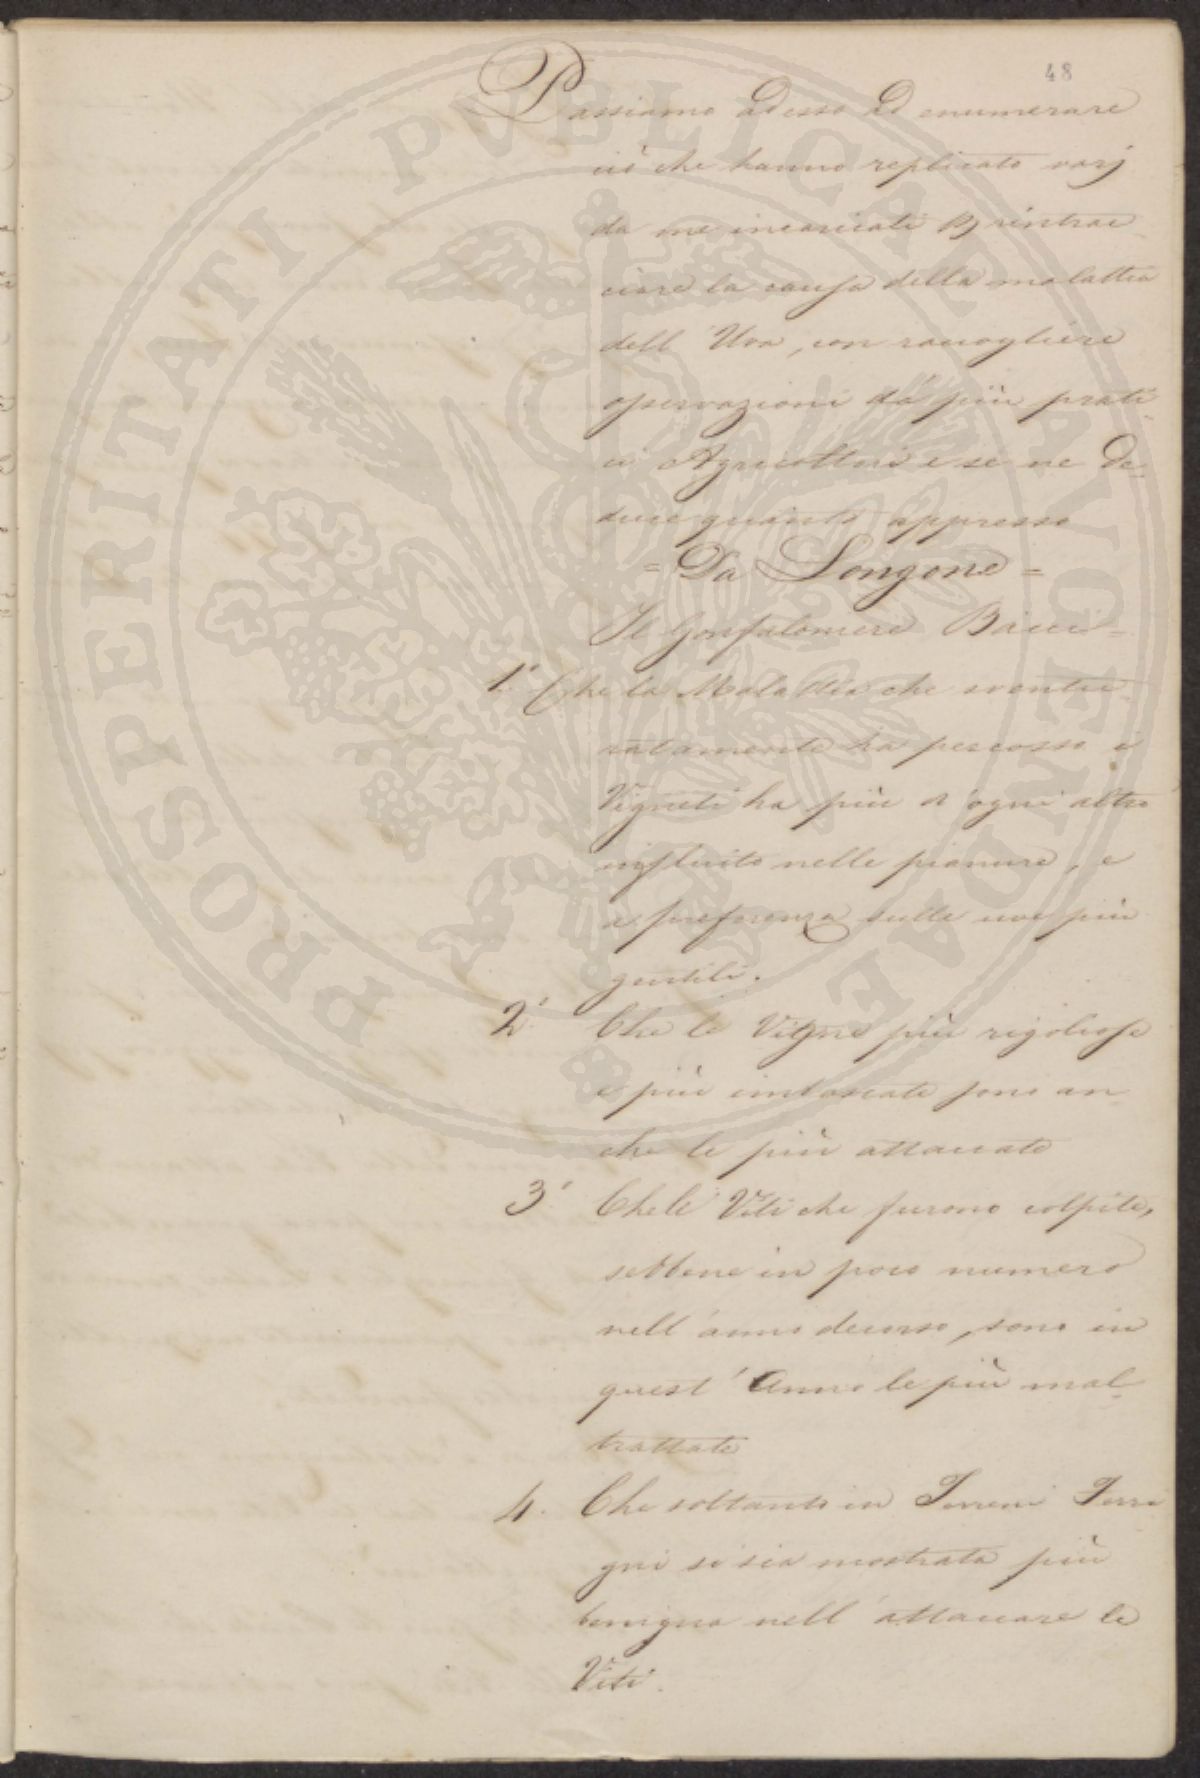 48
Passiamo adesso ad enumerare
ciò che hanno replicato varj
da me incaricati rintrac
ciare la causa della malattia
dell' Uva, con raccogliere
osservazioni da' più prati=
ci Agricoltori e se ne de=
duce quanto appresso
= Da Longone =
Il Gonfaloniere Bacci =
1.° Che la Malattia che sventu
ratamente ha percosso i
Vigneti ha più d'ogni altro
influito nelle pianure, e
a preferenza sulle uve più
gentili.
2.° Che le Vigne più rigoliose
e più imboscate sono an
che le più attaccate
3.° Che le Viti che furono colpite,
sebbene in poco numero
nell'anno decorso, sono in
quest'Anno le più mal=
trattate
4. Che soltanto in Terreni Ferri
gni si sia mostrata più
benigna nell'attaccare le
Viti.
PROSPERITATI PVBLICAE AVGENDAE